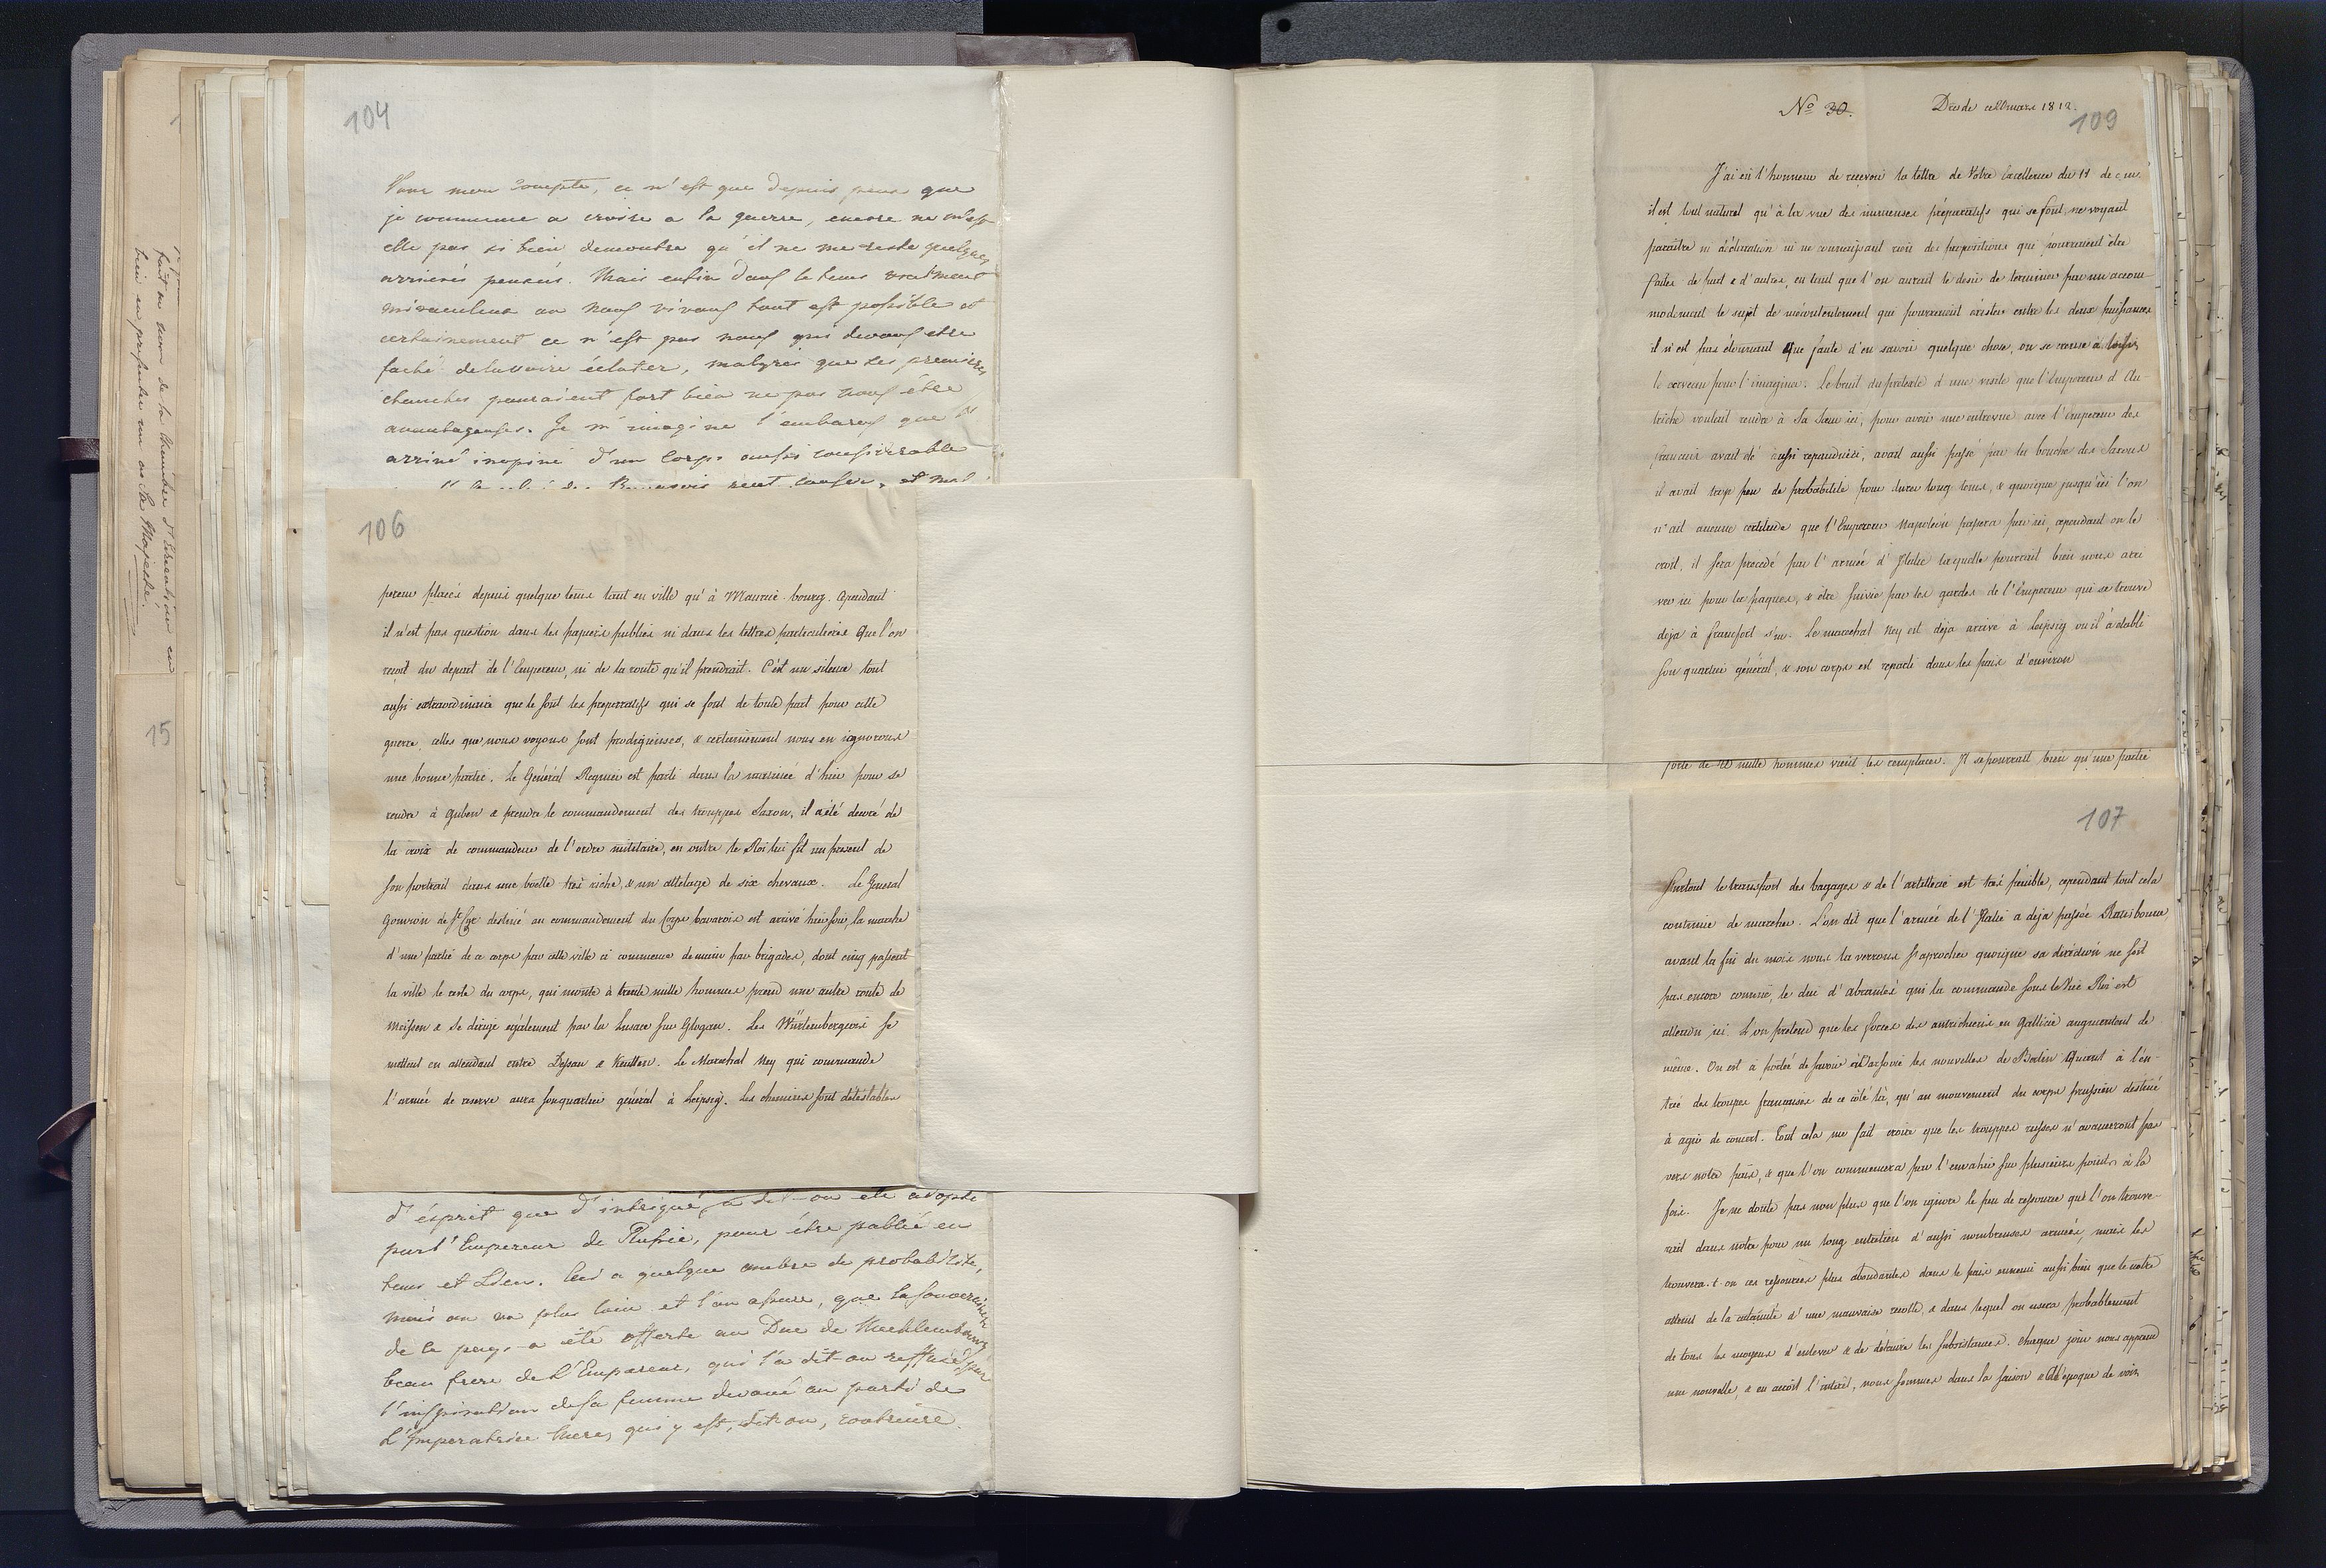 104
Pour mon compte, ce n'est que depuis peux que
je commence a croire a la guerre, encore ne m'est
elle pas si bien demontre qu'il ne me reste quelques
arrierés pensées. Mais enfin dans le tems vraiment
miraculeux ou nous vivons tout est possible et
certainement ce n'est pas nous qui devons etre
faché de la voire éclater, malgrés que les premieres
chanches pouraient fort bien ne pas nous être
avantageuses. Je m'imagine l'embaras que l'
arrivé inopiné d'un Corps aussi considerable
106
pereur placés depuis quelque tems tant en ville qu'à Maurice-bourg. Cependant
il n'est pas question dans les papiers publics ni dans les lettres particulieres que l'on
reçoit du depart de l'Empereur, ni de la route qu'il prendrait. C'est un silence tout
aussi extraordinaire que le sont les preparatifs qui se font de toute part pour cette
guerre, celles que nous voyons sont prodigieuses, & certainement nous en ignorons
une bonne partie. Le Général Regnier est parti dans la matinée d'hier pour se
rendre à Guben & prendre le commandement des trouppes Saxon, il a été decoré de
la croix de commandeur de l'ordre militaire, en outre le Roi lui fit un present de
son portrait dans une boëtte très riche, & un attelage de six chevaux. Le General
Gouvion de St Cyr destiné au commandement du Corps bavarois est arrivé hier soir, la marche
d'une partie de ce corps par cette ville ci commence demain par brigades, dont cinq passent
la ville le reste du corps, qui monte à trente mille hommes prend une autre route de
Meissen & se dirige egalement par la Lusace sur Glogau. Les Würtembergeois se
mettent en attendant entre Dessau & Keutten. Le Marechal Ney qui commande
l'armée de reserve aura son quartier général à Leipsig. Les chemins sont détestables
d'ésprit que d'intrigue, a dit-on été adopté
par l'Empereur de Russie, pour être publié en
tems et Lieu. Ceci a quelque ombre de probabilité,
mais on va plus loin et l'on assure, que la souveraineté
de ce pays a été offerte au Duc de Mecklembourg
beau frere de l'Empereur, qui l'a dit-on reffusé par
l'inspiration de sa femme devoué au parti de
L'Imperatrice Mere, qui y est, dit on, contraire.
faite au nom de la Chambre d'Education en
bien en presenter un au Sa Majesté.
15
No 30. Dresde ce 20 mars 1812.
109
J'ai eû l'honneur de reçevoir la lettre de Votre Excellence du 11 de c.m.
il est tout naturel qu'à la vue des immenses préparatifs qui se font, ne voyant
paraitre ni déclaration ni ne connoissant rien des propositions qui pourraient être
faites de part & d'autres, en tant que l'on aurait le desir de terminer par un accom-
modement le sujet de mécontentement qui pourraient éxister entre les deux puissances
il n'est pas étonnant que faute d'en savoir quelque chose, on se creuse à loisir
le cerveau pour l'imaginer. Le bruit du pretexte d'une visite que l'Empereur d'Au-
triche voulait rendre à Sa Sœur ici, pour avoir une entrevue avec l'Empereur des
français avait été aussi repandu ici, avait aussi passé par la bouche des Saxons
il avait trop peu de probabilité pour durer long tems, & quoique jusqu'ici l'on
n'ait aucune certitude que l'Empereur Napoléon passera par ici, cependant on le
croit, il sera precedé par l'armée d'Italie laquelle pourrait bien nous arri
ver ici pour les paques, & être suivie par les gardes de l'Empereur qui se trouve
deja à francfort s/m. Le marechal Ney est deja arrivé à Leipsig ou il a établi
son quartier général, & son corps est reparti dans les païs d'environ
forte de mille hommes vient les remplacer. Il se pourrait bien qu'une partie
107
Surtout le transport des bagages & de l'artillerie est très penible, cependant tout cela
continue de marcher. L'on dit que l'armée de l'Italie a deja passée Ratisbonne,
avant la fin du mois nous la verrons s'aprocher quoique sa direction ne soit
pas encore connue, le duc d'abrantés qui la commande sous le Vice Roi est
attendu ici. L'on pretend que les forces des autrichiens en Gallicie augmentent de
même. On est à portée de savoir à Varsovie les nouvelles de Berlin quant à l'en-
trée des troupes françaises de ce côté là, qu'au mouvement du corps prussien destiné
à agir de concert. Tout cela me fait croire que les trouppes russes n'avanceront pas
vers notre païs, & que l'on commencera par l'envahir sur plusieurs points à la
fois. Je ne doute pas non plus que l'on ignore le peu de ressource que l'on trouve-
rait dans notre pour un long entretien d'aussi nombreuses armées, mais les
trouvera-t-on ces ressources plus abondantes dans le païs ennemi aussi bien que le notre
atteint de la calamité d'une mauvaise recolte, & dans lequel on usera probablement
de tous les moyens d'enlever & de détruire les subsistances. Chaque jour nous apprend
une nouvelle, & en accroit l'interêt, nous sommes dans la saison & à l'époque de voir